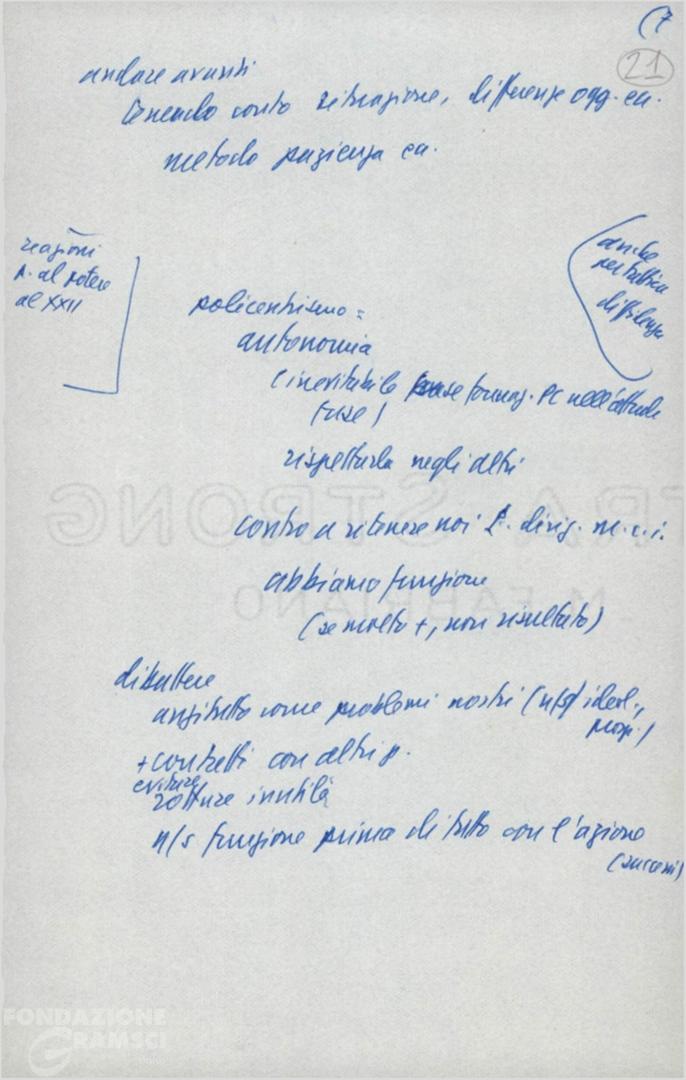 (7
21
andare avanti
tenendo conto situazione, differenze ogg. ecc.
metodo pazienza ecc.
reazioni
p. al potere
al XXII
anche
per tattica
diffidenza
policentrismo =
autonomia
(inevitabile formaz. PC nell'attuale
fase)
rispettarla negli altri
contro a ritenere noi dirig. m.c.i.
abbiamo funzione
(se molto +, non risultato)
dibattere
anzitutto come problemi nostri (n/s ideol.,
prosp.)
+ contatti con altri p.
evitare
rotture inutili
n/s funzione prima di tutto con l'azione
(successi)
TRA STRONG
M. FABRIANO
FONDAZIONE
GRAMSCI